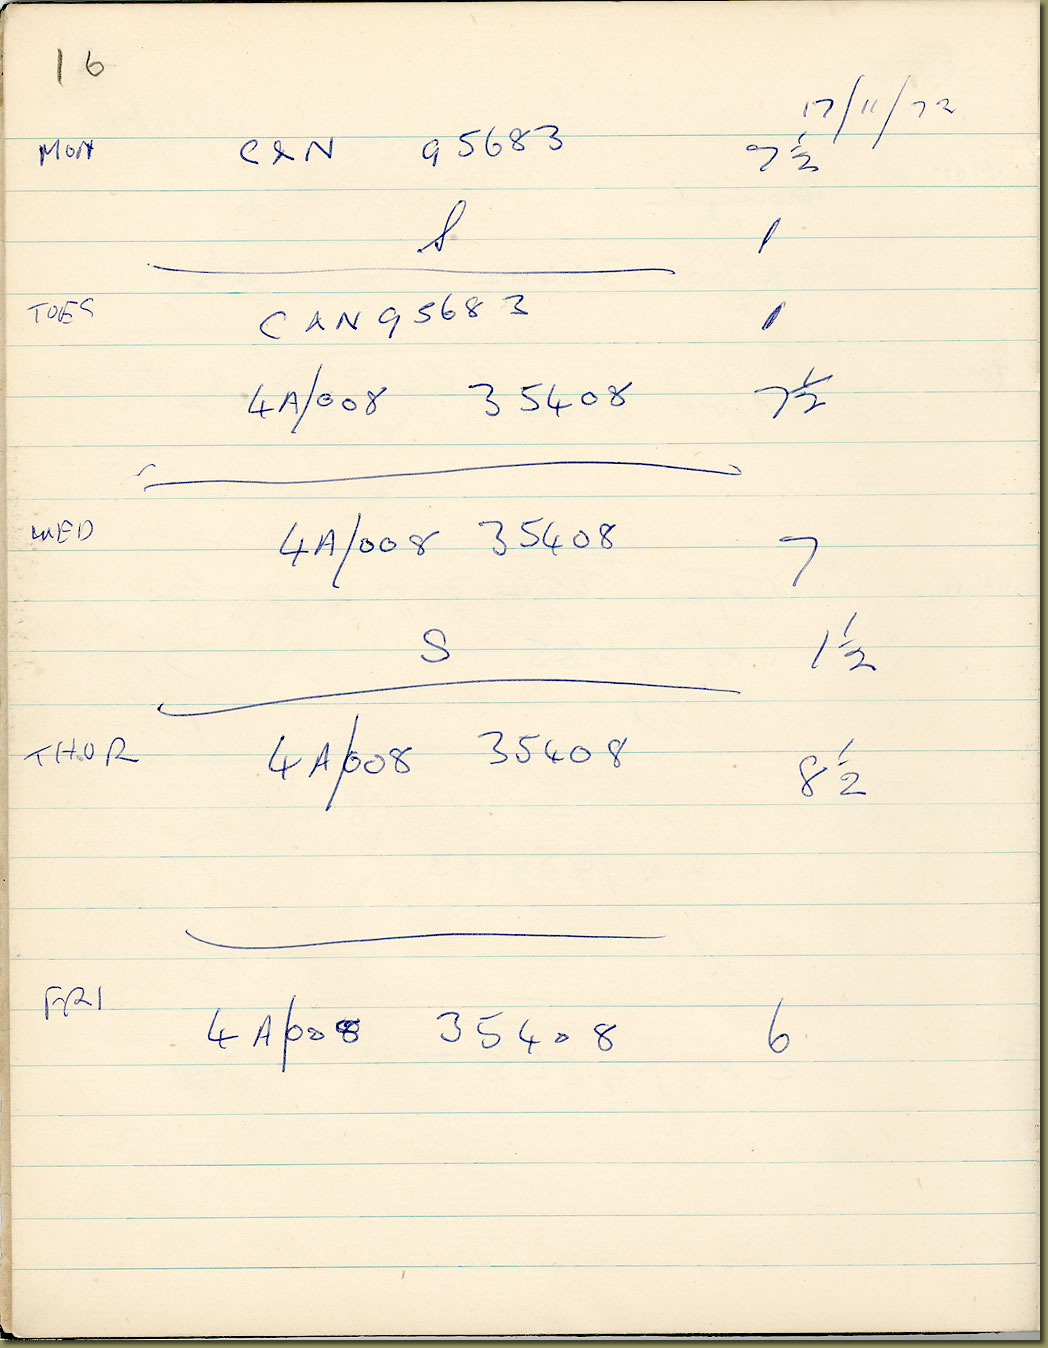 16
17/11/72
MON C&N 95683 7½
S 1
TUES C&N 95683 1
4A/008 35408 7½
WED 4A/008 35408 7
S 1½
THUR 4A/008 35408 8½
FRI 4A/008 35408 6